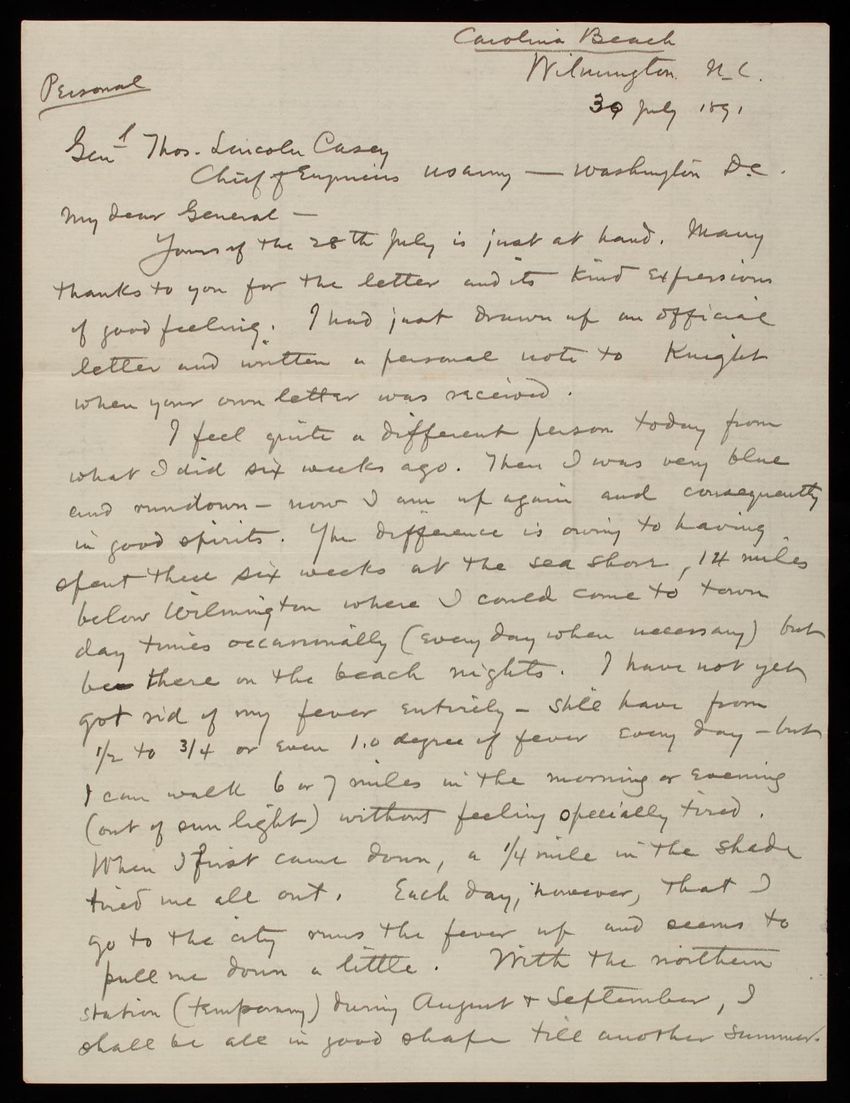 Carolina Beach
Wilmington N.C.
Personal
30 July 1891
Genl Thos. Lincoln Casey
Chief of Engineers US Army — Washington D.C.
My dear General —
Yours of the 28th July is just at hand. Many
thanks to you for the letter and its kind expressions
of good feeling. I had just drawn up an official
letter and written a personal note to Knight
when your own letter was received.
I feel quite a different person today from
what I did six weeks ago. Then I was very blue
and rundown — now I am up again and consequently
in good spirits. The difference is owing to having
spent these six weeks at the sea shore, 14 miles
below Wilmington where I could come to town
day times occasionally (every day when necessary) but
be there on the beach nights. I have not yet
got rid of my fever entirely — still have from
1/2 to 3/4 or even 1.0 degree of fever every day — but
I can walk 6 or 7 miles in the morning or evening
(out of sun light) without feeling specially tired.
When I first came down, a 1/4 mile in the shade
tired me all out. Each day, however, that I
go to the city runs the fever up and seems to
pull me down a little. With the northern
station (temporary) during August & September, I
shall be all in good shape till another summer.